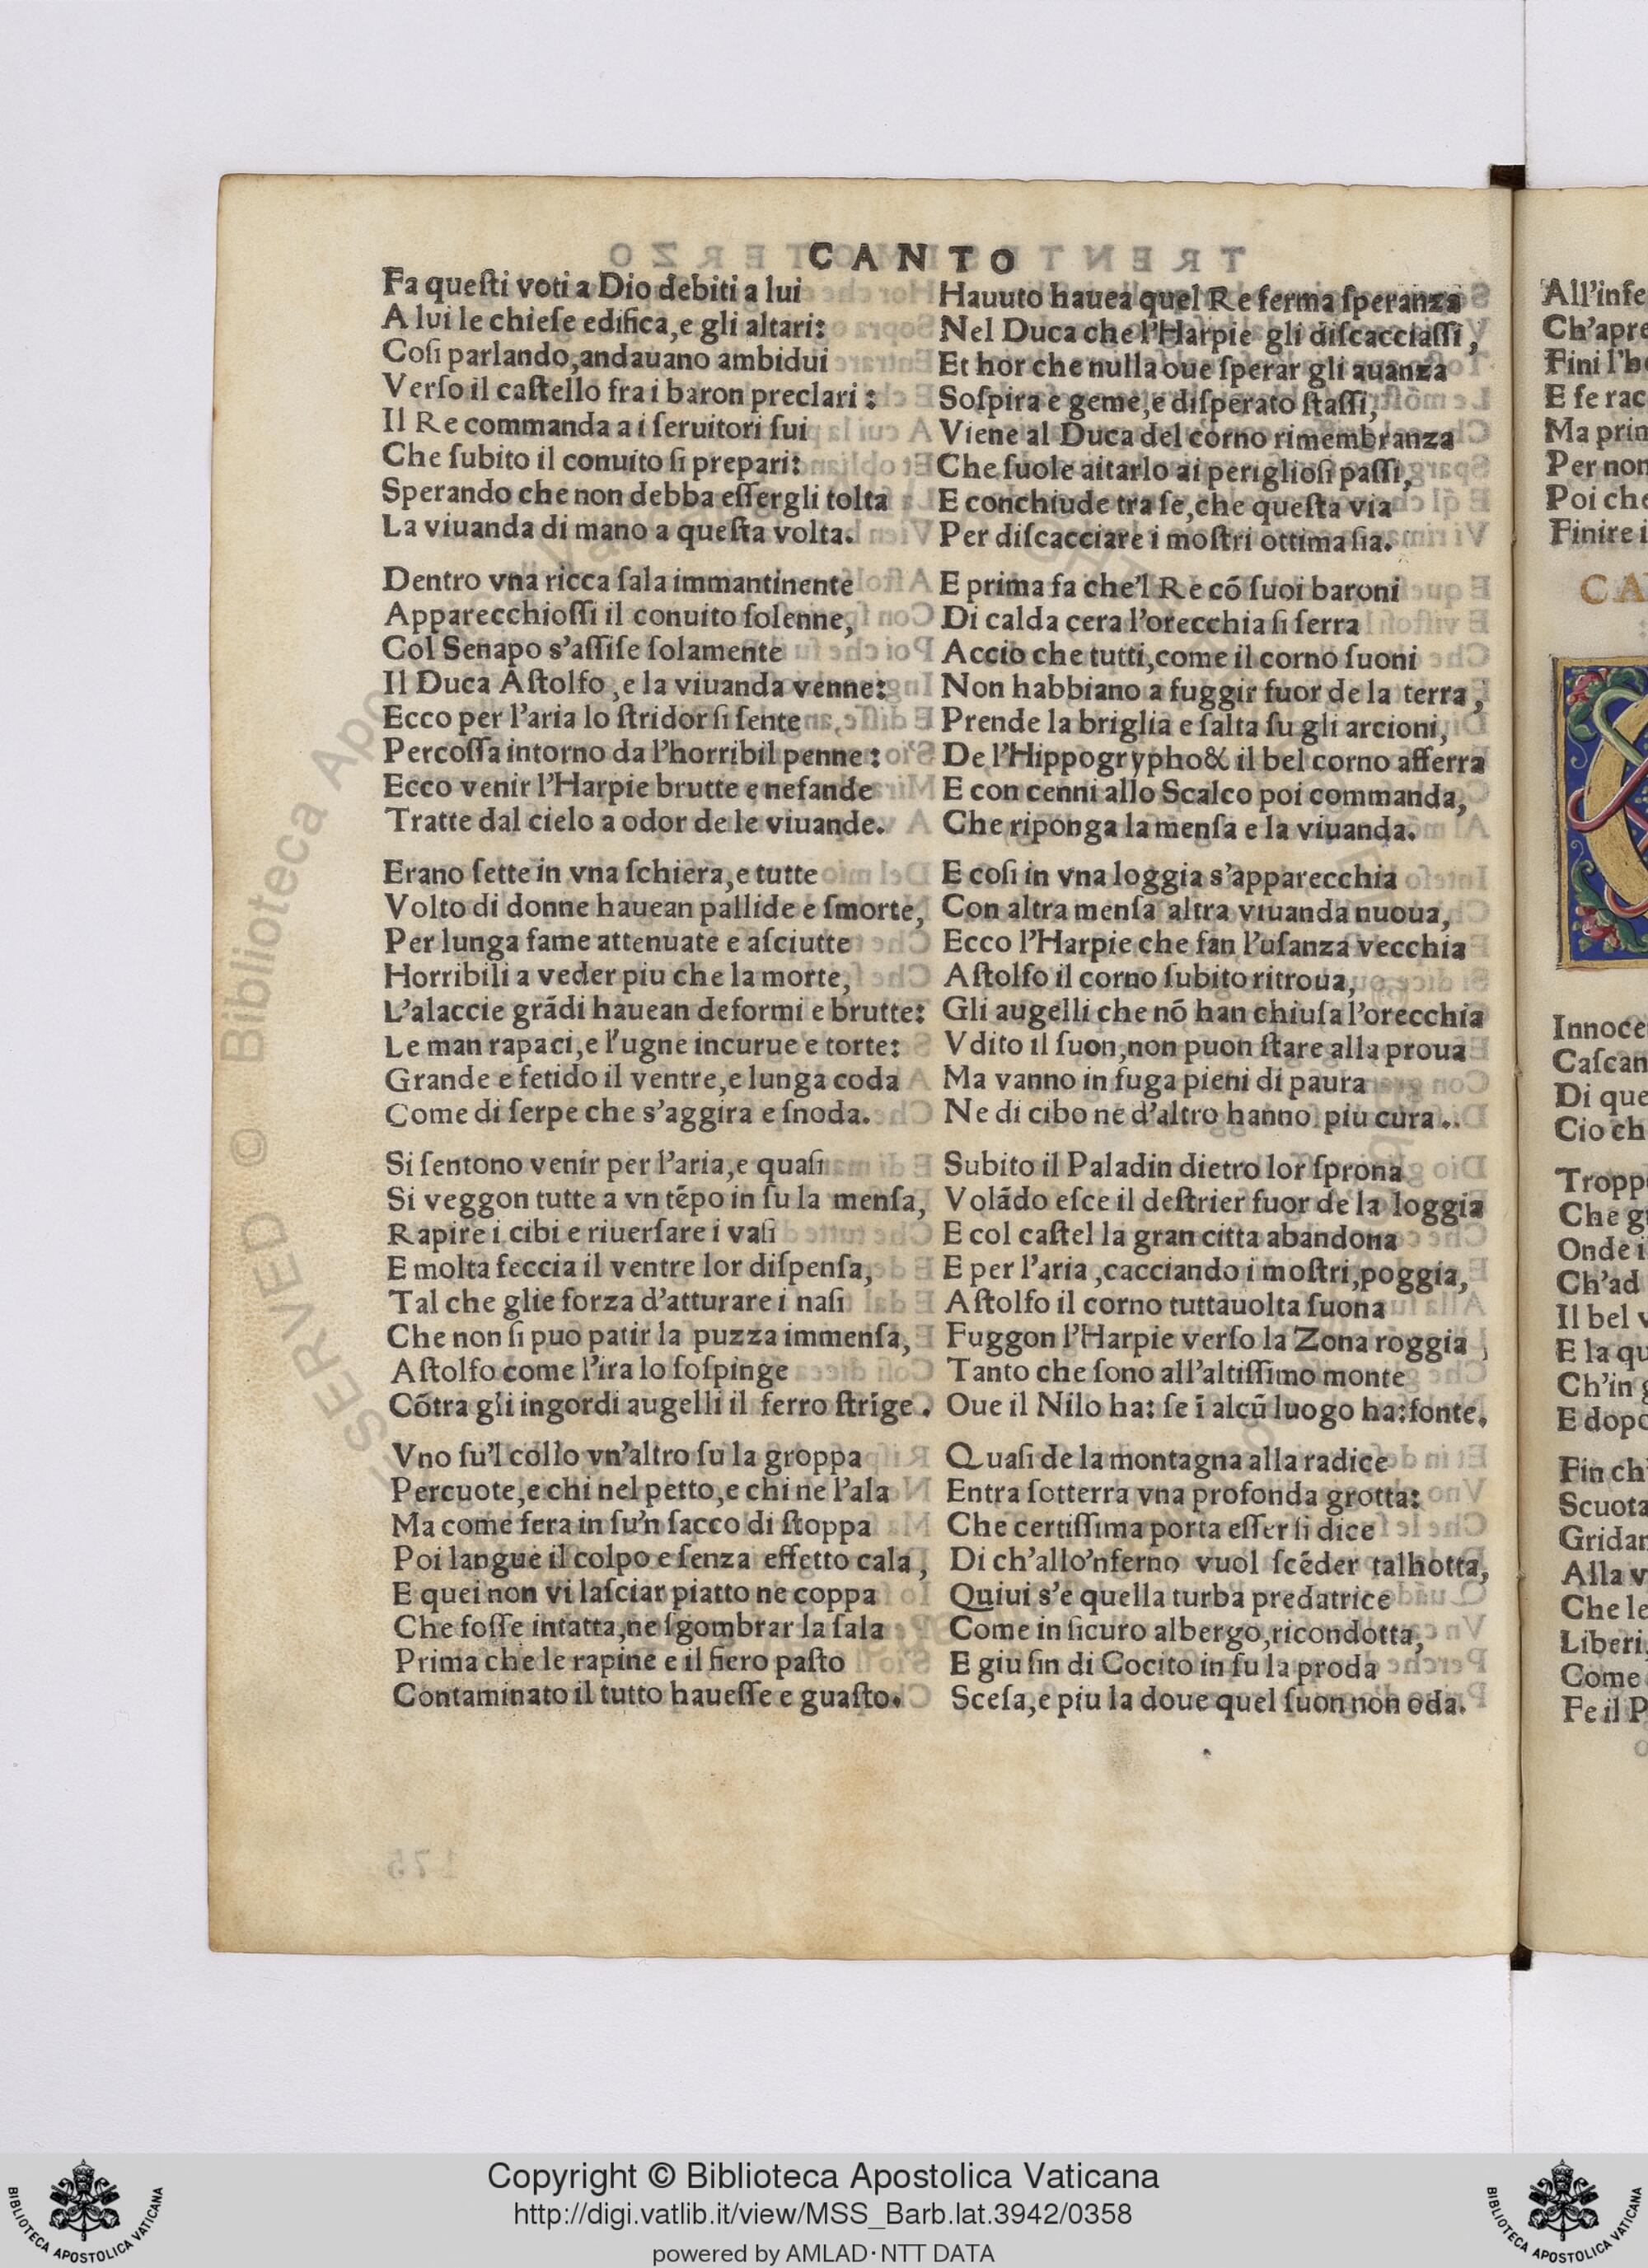 CANTO
Fa queſti voti a Dio debiti a lui
A lui le chieſe edifica,e gli altari:
Coſi parlando,andauano ambidui
Verſo il caſtello fra i baron preclari :
Il Re commanda a i ſeruitori ſui
Che ſubito il conuito ſi prepari:
Sperando che non debba eſſergli tolta
La viuanda di mano a queſta volta.
Dentro vna ricca ſala immantinente
Apparecchioſſi il conuito ſolenne,
Col Senapo s'aſſiſe ſolamente
Il Duca Aſtolfo ,e la viuanda venne:
Ecco per l'aria lo ſtridor ſi ſente
Percoſſa intorno da l'horribil penne :
Ecco venir l'Harpie brutte e nefande
Tratte dal cielo a odor de le viuande.
Erano ſette in vna ſchiera,e tutte
Volto di donne hauean pallide e ſmorte,
Per lunga fame attenuate e aſciutte
Horribili a veder piu che la morte,
L'alaccie grādi hauean deformi e brutte:
Le man rapaci,e l'ugne incurue e torte:
Grande e fetido il ventre,e lunga coda
Come di ſerpe che s'aggira e ſnoda.
Si ſentono venir per l'aria,e quaſi
Si veggon tutte a vn tēpo in ſu la menſa,
Rapire i cibi e riuerſare i vaſi
E molta feccia il ventre lor diſpenſa,
Tal che glie forza d'atturare i naſi
Che non ſi puo patir la puzza immenſa,
Aſtolfo come l'ira lo ſoſpinge
Cōtra gli ingordi augelli il ferro ſtrīge .
Vno ſu'l collo vn'altro ſu la groppa
Percuote,e chi nel petto,e chi ne l'ala
Ma come fera in ſu'n ſacco di ſtoppa
Poi langue il colpo e ſenza effetto cala ,
E quei non vi laſciar piatto ne coppa
Che foſſe intatta,ne ſgombrar la ſala
Prima che le rapine e il fiero paſto
Contaminato il tutto haueſſe e guaſto.
Hauuto hauea quel Re ferma ſperanza
Nel Duca che l'Harpie gli diſcacciaſſi ,
Et hor che nulla oue ſperar gli auanza
Soſpira e geme,e diſperato ſtaſſi,
Viene al Duca del corno rimembranza
Che ſuole aitarlo ai periglioſi paſſi,
E conchiude tra ſe,che queſta via
Per diſcacciare i moſtri ottima ſia.
E prima fa che'l Re cō ſuoi baroni
Di calda cera l'orecchia ſi ſerra
Accio che tutti,come il corno ſuoni
Non habbiano a fuggir fuor de la terra ,
Prende la briglia e ſalta ſu gli arcioni,
De l'Hippogrypho& il bel corno afferra
E con cenni allo Scalco poi commanda,
Che riponga la menſa e la viuanda.
E coſi in vna loggia s'apparecchia
Con altra menſa altra viuanda nuoua,
Ecco l'Harpie che fan l'uſanza vecchia
Aſtolfo il corno ſubito ritroua,
Gli augelli che nō han chiuſa l'orecchia
Vdito il ſuon,non puon ſtare alla proua
Ma vanno in fuga pieni di paura
Ne di cibo ne d'altro hanno piu cura .
Subito il Paladin dietro lor ſprona
Volādo eſce il deſtrier fuor de la loggia
E col caſtel la gran citta abandona
E per l'aria ,cacciando i moſtri,poggia,
Aſtolfo il corno tuttauolta ſuona
Fuggon l'Harpie verſo la Zona roggia ,
Tanto che ſono all'altiſſimo monte
Oue il Nilo ha: ſe ī alcū luogo ha:fonte.
Quaſi de la montagna alla radice
Entra ſotterra vna profonda grotta:
Che certiſſima porta eſſer ſi dice
Di ch'allo'nferno vuol ſcēder talhotta,
Quiui s'e quella turba predatrice
Come in ſicuro albergo,ricondotta,
E giu ſin di Cocito in ſu la proda
Sceſa,e piu la doue quel ſuon non oda.
All'infe
Ch'apre
Fini l'h
E fe rac
Ma prin
Per non
Poi che
Finire i
CA
Innoce
Caſcan
Di que
Cio ch
Tropp
Che g
Onde i
Ch'ad
Il bel v
E la qu
Ch'in g
E dopo
Fin ch'
Scuota
Gridar
Alla v
Che le
Liberi,
Come
Fe il P
175
RESERVED © Biblioteca Apo
Copyright © Biblioteca Apostolica Vaticana
http://digi.vatlib.it/view/MSS_Barb.lat.3942/0358
powered by AMLAD·NTT DATA
BIBLIOTECA APOSTOLICA VATICANA
BIBLIOTECA APOSTOLICA VATICANA